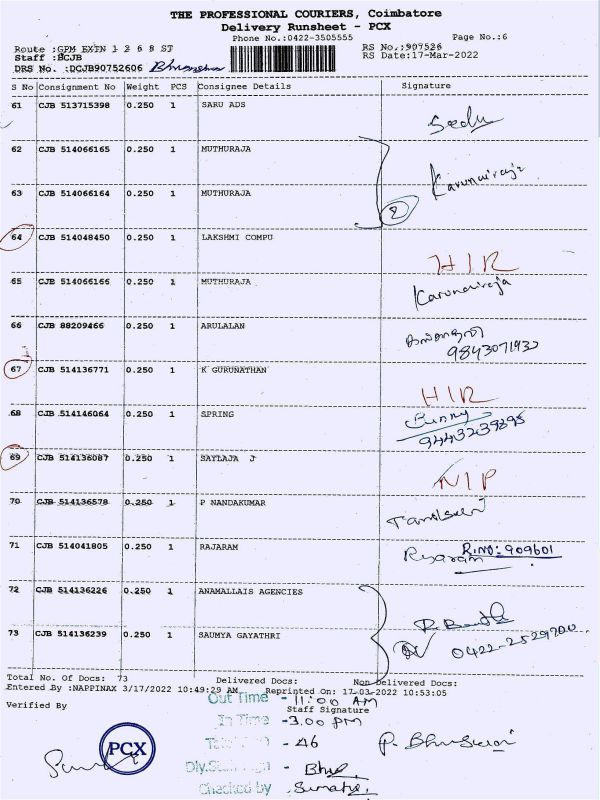 THE PROFESSIONAL COURIERS, Coimbatore
Delivery Runsheet - PCX
Phone No.:0422-3505555 Page No.:6
Route :GPM EXTN 1 2 6 8 ST RS No.:907526
Staff :BCJB RS Date:17-Mar-2022
DRS No. :DCJB90752606
S No Consignment No Weight PCS Consignee Details Signature
61 CJB 513715398 0.250 1 SARU ADS
62 CJB 514066165 0.250 1 MUTHURAJA
Karunairaja
63 CJB 514066164 0.250 1 MUTHURAJA
2
64 CJB 514048450 0.250 1 LAKSHMI COMPU
HIR
65 CJB 514066166 0.250 1 MUTHURAJA Karunairaja
66 CJB 88209466 0.250 1 ARULALAN
9843071932
67 CJB 514136771 0.250 1 K GURUNATHAN
HIR
68 CJB 514146064 0.250 1 SPRING
69 CJB 514136087 0.250 1 SAYLAJA J
NIP
70 CJB 514136578 0.250 1 P NANDAKUMAR
71 CJB 514041805 0.250 1 RAJARAM R.NO: 909601
72 CJB 514136226 0.250 1 ANAMALLAIS AGENCIES
73 CJB 514136239 0.250 1 SAUMYA GAYATHRI
Total No. Of Docs: 73 Delivered Docs: Non Delivered Docs:
Entered By :NAPPINAX 3/17/2022 10:49:29 AM Reprinted On: 17-03-2022 10:53:05
Out Time - 11:00 AM
Verified By Staff Signature
In Time - 3.00 PM
- 46
PCX
Checked by